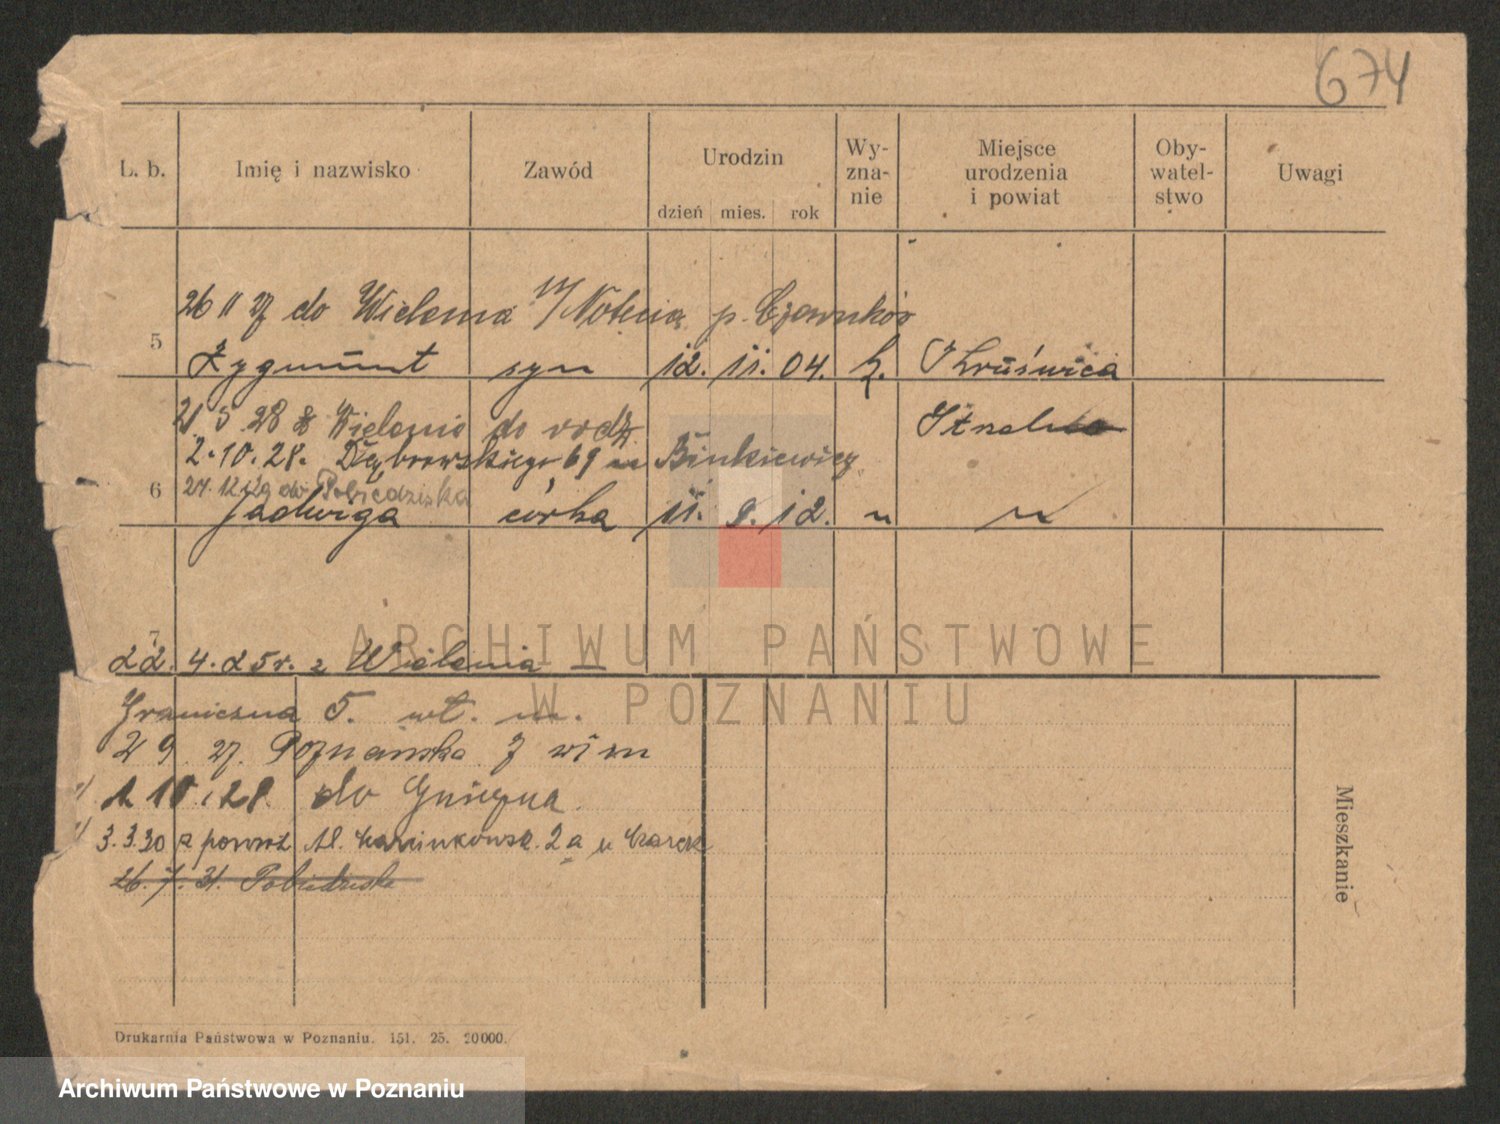 674
L. b. Imię i nazwisko Zawód Urodzin dzień mies. rok Wy-zna-nie Miejsce urodzenia i powiat Oby-watel-stwo Uwagi
26 11 27 do Wielenia n/Notecią p. Czarnków
5 Zygmunt syn 12. 11. 04. k. Kruświca
21 5 28 z Wielenia do rodz. Strzelno
2.10.28. Dąbrowskiego 69 m Binkiewicz
6 27.12.29 do Pobiedziska
Jadwiga córka 11. 9. 12. " "
7
22. 4. 25 r. z Wielenia —
ARCHIWUM PAŃSTWOWE
W POZNANIU
Graniczna 5. wł. m.
2 9. 27. Poznańska 7
1 10.28. do Gniezna
3.3.30 z powrot 2a u
26. 7. 31. Pobiedziska
Mieszkanie
Drukarnia Państwowa w Poznaniu. 151. 25. 20000.
Archiwum Państwowe w Poznaniu